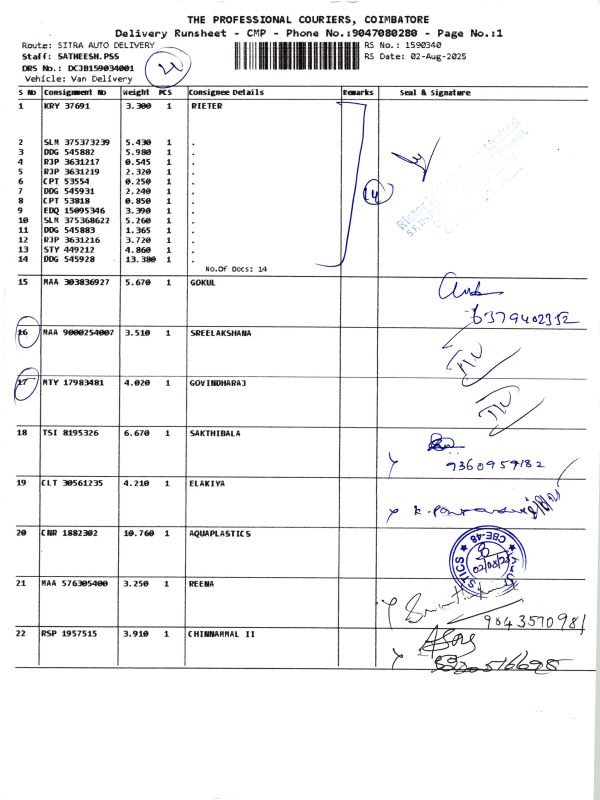 THE PROFESSIONAL COURIERS, COIMBATORE
Delivery Runsheet - CMP - Phone No.:9047080280 - Page No.:1
Route: SITRA AUTO DELIVERY
RS No.: 1590340
Staff: SATHEESH.PSS
RS Date: 02-Aug-2025
DRS No.: DCJB159034001
Vehicle: Van Delivery
S No Consignment No Weight PCS Consignee Details Remarks Seal & Signature
1 KRY 37691 3.300 1 RIETER
2 SLM 375373239 5.430 1 .
3 DDG 545882 5.980 1 .
4 RJP 3631217 0.545 1 .
5 RJP 3631219 2.320 1 .
6 CPT 53554 0.250 1 .
7 DDG 545931 2.240 1 .
8 CPT 53818 0.850 1 .
9 EDQ 15095346 3.390 1 .
10 SLM 375368622 5.260 1 .
11 DDG 545883 1.365 1 .
12 RJP 3631216 3.720 1 .
13 STY 449212 4.860 1 .
14 DDG 545928 13.380 1 .
14
No.Of Docs: 14
15 MAA 303836927 5.670 1 GOKUL
6379402352
16 MAA 9000254007 3.510 1 SREELAKSHANA
17 MTY 17983481 4.020 1 GOVINDHARAJ
18 TSI 8195326 6.670 1 SAKTHIBALA
9360959182
19 CLT 30561235 4.210 1 ELAKIYA
20 CNR 1882302 10.760 1 AQUAPLASTICS
CBE-48
02/08/25
21 MAA 576305400 3.250 1 REENA
9043570981
22 RSP 1957515 3.910 1 CHINNAMMAL II